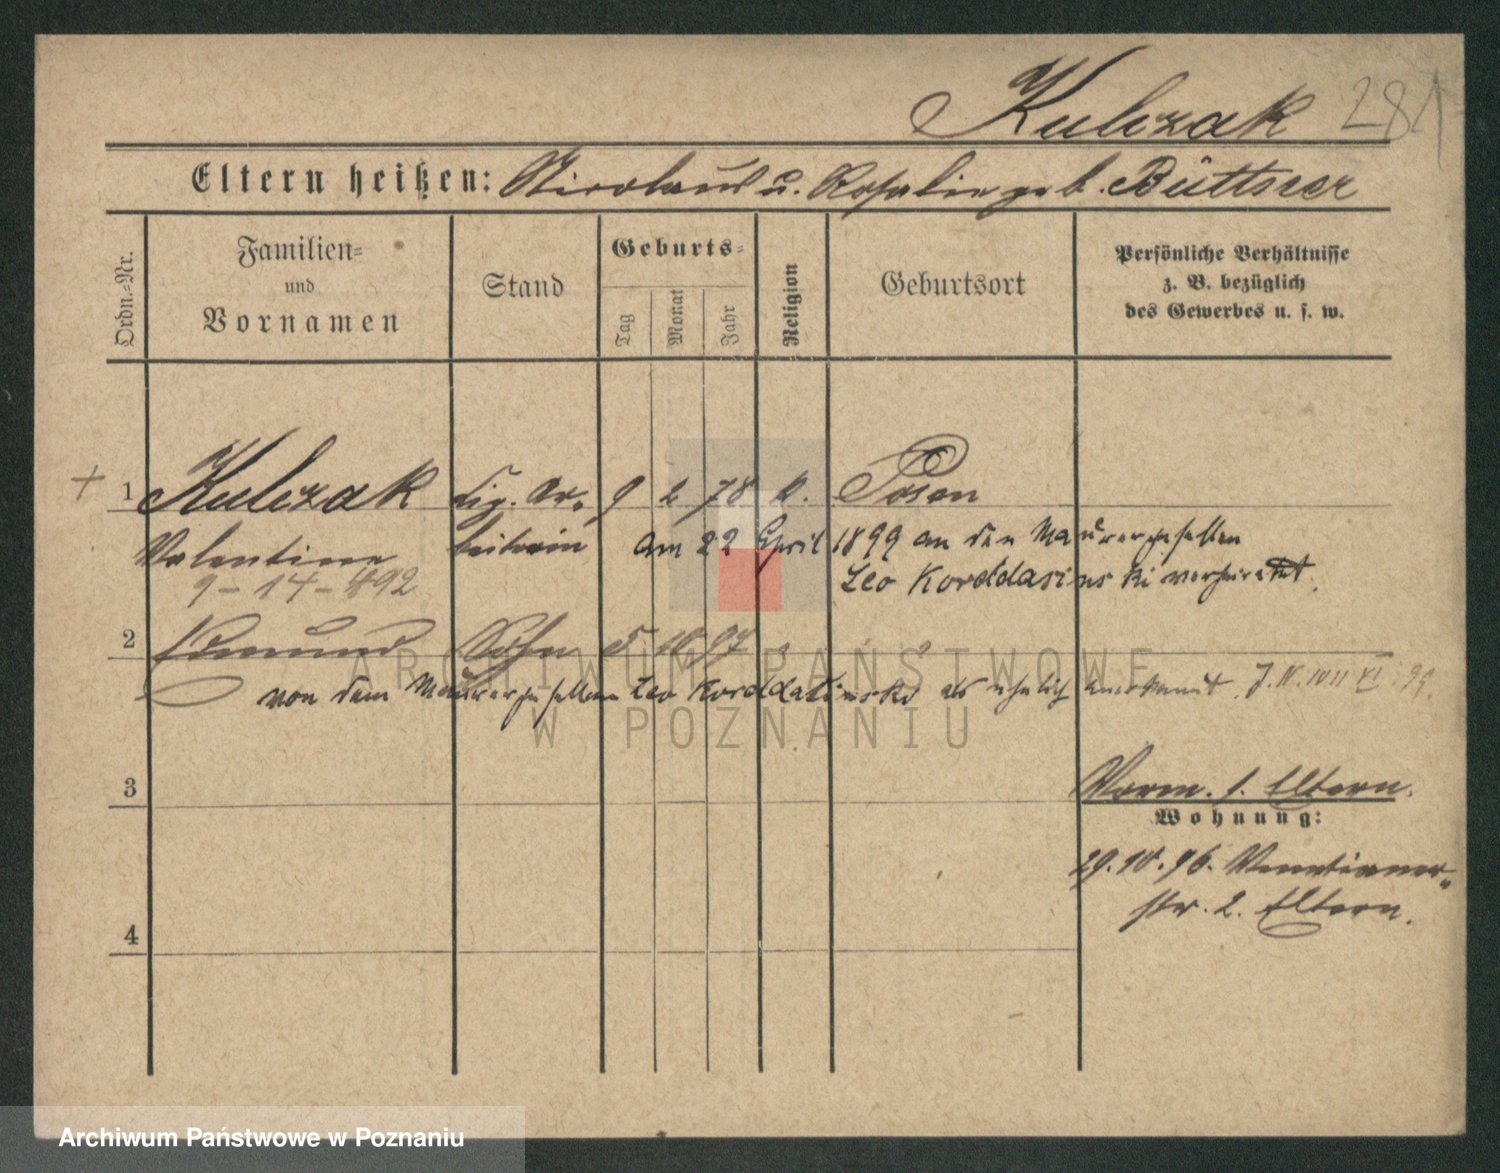 Kulczak 281
Eltern heißen: Nicolaus u. Rosalie geb. Büttner
Ordn.-Nr.
Familien-
und
Vornamen
Stand
Geburts-
Tag
Monat
Jahr
Religion
Geburtsort
Persönliche Verhältnisse
z. B. bezüglich
des Gewerbes u. s. w.
+ 1 Kulczak Cig. Ar- 9 2 78 k. Posen
Valentine beiterin am 22 April 1899 an den Maurergesellen
9-14-892 Leo Korddasinski verheiratet.
2 Edmund Sohn 5 10 97 " "
von dem Maurergesellen Leo Korddasinski als ehelich anerkannt. J. N. VI. 99.
3
Vorm. s. Eltern.
Wohnung:
29.10.96. Venetianer-
str. 2. Eltern.
4
ARCHIWUM PAŃSTWOWE
W POZNANIU
Archiwum Państwowe w Poznaniu